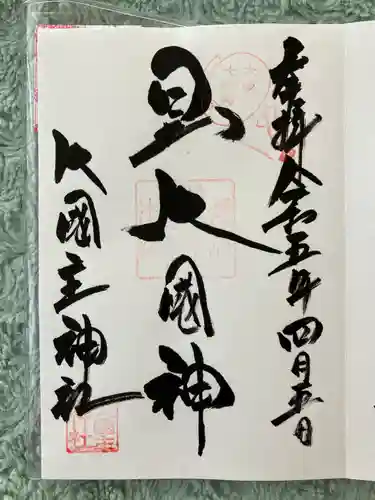 奉拝 令和五年四月五日
大國神
大國主神社